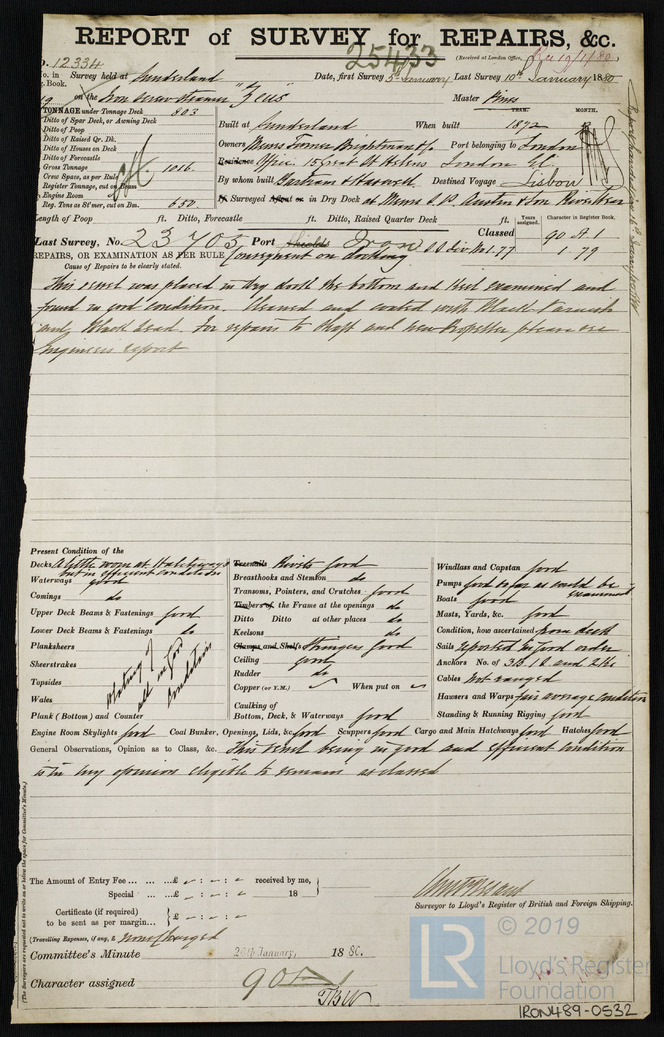 REPORT of SURVEY for REPAIRS, &c.
25433
(Received at London Office,
No. 12334
No. in Survey held at Sunderland Date, first Survey 5th January Last Survey 10th January 1880
Reg. Book.
on the Iron Screw Steamer "Zeus" Master Pines
TONNAGE under Tonnage Deck 803
Ditto of Spar Deck, or Awning Deck
Ditto of Poop
Ditto of Raised Qr. Dk.
Ditto of Houses on Deck
Ditto of Forecastle
Gross Tonnage 1016.
Crew Space, as per Rule
Register Tonnage, cut on Beam
Engine Room
Reg. Tons as St'mer, cut on Bm. 650.
YEAR. MONTH.
Built at Sunderland When built 1872
Owners Messrs Turner Brightman & Co. Port belonging to London
Residence Office 15 Great St Helens London EC
By whom built Bartram & Haswell Destined Voyage Lisbon
If Surveyed Afloat or in Dry Dock at Messrs S. P. Austin & Son River Wear
Length of Poop ft. Ditto, Forecastle ft. Ditto, Raised Quarter Deck ft.
Years assigned. Character in Register Book.
Last Survey, No. 23705 Port Shields Iron Classed 90 A 1
S.S. Div No 1-77 1 79
REPAIRS, OR EXAMINATION AS PER RULE Consequent on docking
Cause of Repairs to be clearly stated.
This vessel was placed in dry dock the bottom and keel examined and
found in good condition. Cleaned and coated with Black Varnish
and Black Lead. For repairs to shaft and new Propeller please see
Engineers report
Present Condition of the
Decks A little worn at Hatchways but in efficient condition
Waterways good
Comings do
Upper Deck Beams & Fastenings good
Lower Deck Beams & Fastenings do
Planksheers
Sheerstrakes
Topsides
Wales
Plank (Bottom) and Counter
Plating all in good condition
Treenails Rivets good
Breasthooks and Stemson do
Transoms, Pointers, and Crutches good
Timbers of the Frame at the openings do
Ditto Ditto at other places do
Keelsons do
Clamps and Shelfs Stringers good
Ceiling good
Rudder do
Copper (or Y.M.) When put on
Caulking of
Bottom, Deck, & Waterways good
Windlass and Capstan good
Pumps good as far as could be examined
Boats good
Masts, Yards, &c. good
Condition, how ascertained from deck
Sails reported in good order
Anchors No. of 3B. 1S. and 2K.
Cables not ranged
Hawsers and Warps fair average condition
Standing & Running Rigging good
Engine Room Skylights good Coal Bunker, Openings, Lids, &c. good Scuppers good Cargo and Main Hatchways good Hatches good
General Observations, Opinion as to Class, &c. This vessel being in good and efficient condition
is in my opinion eligible to remain as classed
The Amount of Entry Fee ... £ - : - : - received by me,
Special ... £ - : - : - 18
Certificate (if required) to be sent as per margin... £ - : - : -
(Travelling Expenses, if any, £ none charged
Surveyor to Lloyd's Register of British and Foreign Shipping.
Committee's Minute 20th January, 1880.
Character assigned 90 A 1
(The Surveyors are requested not to write on or below the space for Committee's Minute.)
© 2019
LR
Lloyd's Register
Foundation
IRON489-0532